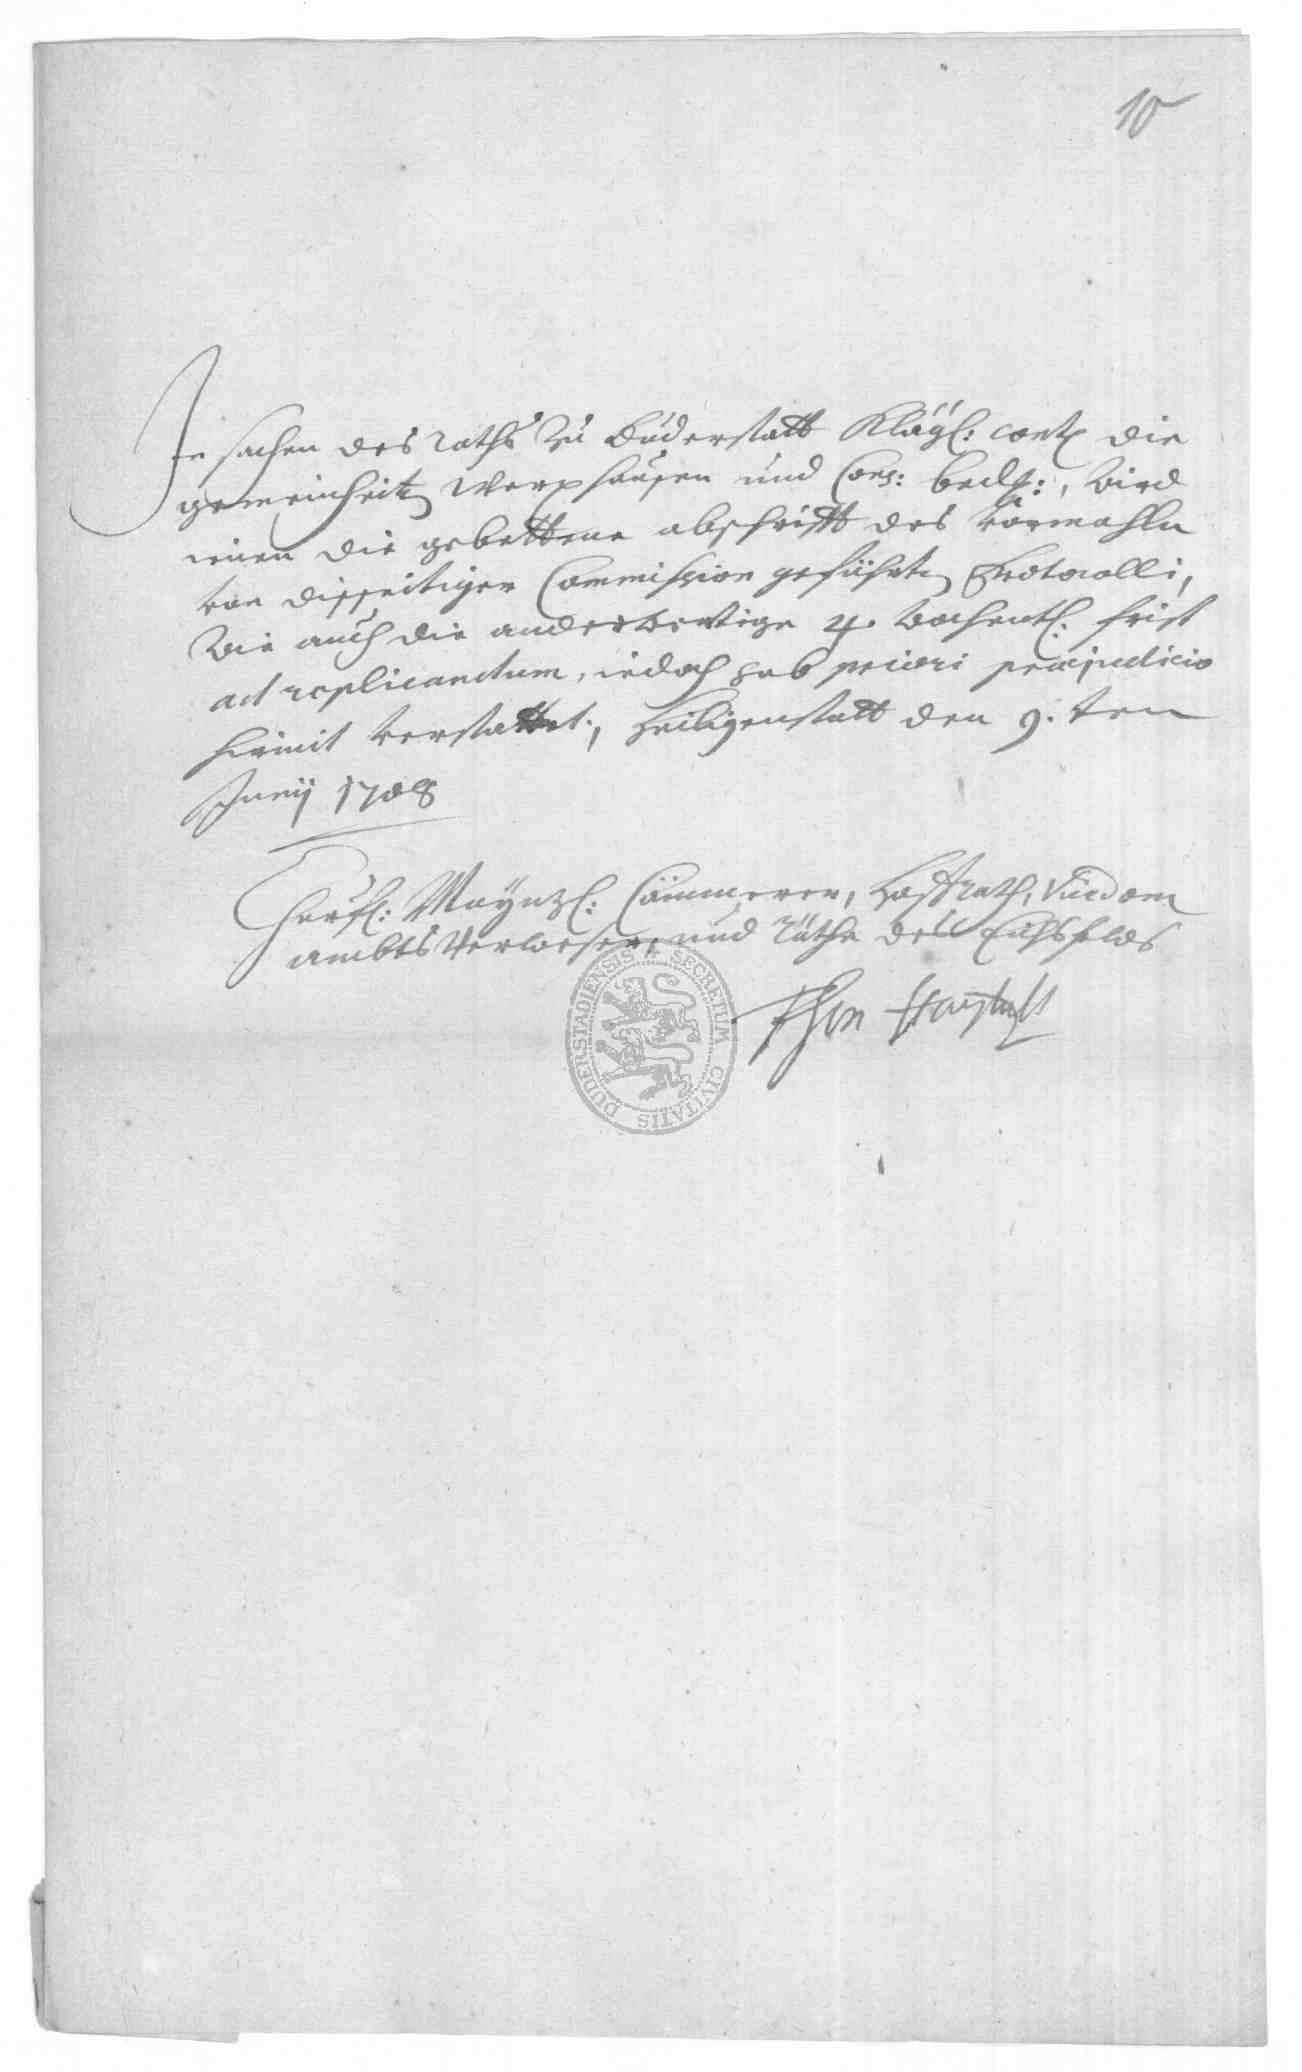 10
In sachen des raths zu Duderstatt Klägl: contra die
gemeinheiten Werxhausen und Cons: beckl:, wird
ienen die gebettene abschrifft des vormahln
von disseitiger Commission geführten Protocolli,
wie auch die anderwertige 4. wochentl: frist
ad replicandum, iedoch sub priori præjudicio
hiemit verstattet, Heiligenstatt den 9.ten
Junij 1708
Churfl: Mayntzl: Cämmerer, Hoffrath, Vicedom
ambts Verweser, und räthe des Eichsfelds
DUDERSTADIENSIS SECRETUM CIVITATIS